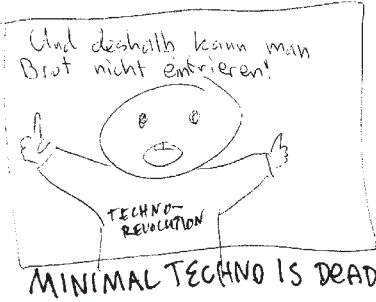 Und deshalb kann man
Brot nicht einfrieren!
TECHNO-
REVOLUTION
MINIMAL TECHNO IS DEAD